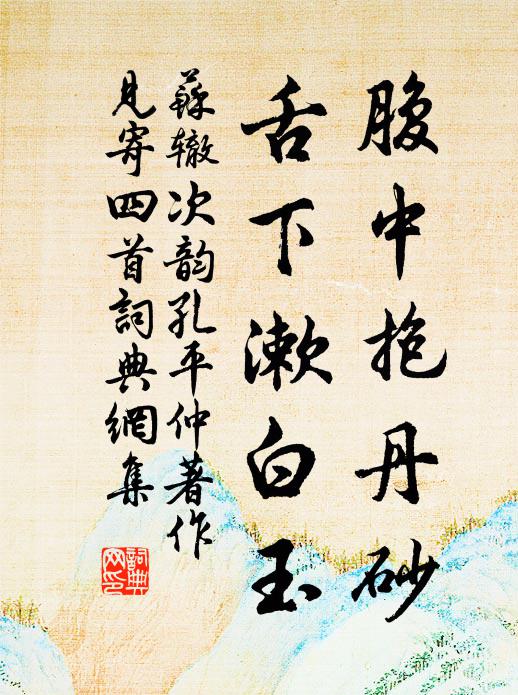 腹中抱丹砂
舌下漱白玉
蘇辙次韵孔平仲著作
見寄四首詞典網集
詞典
网印